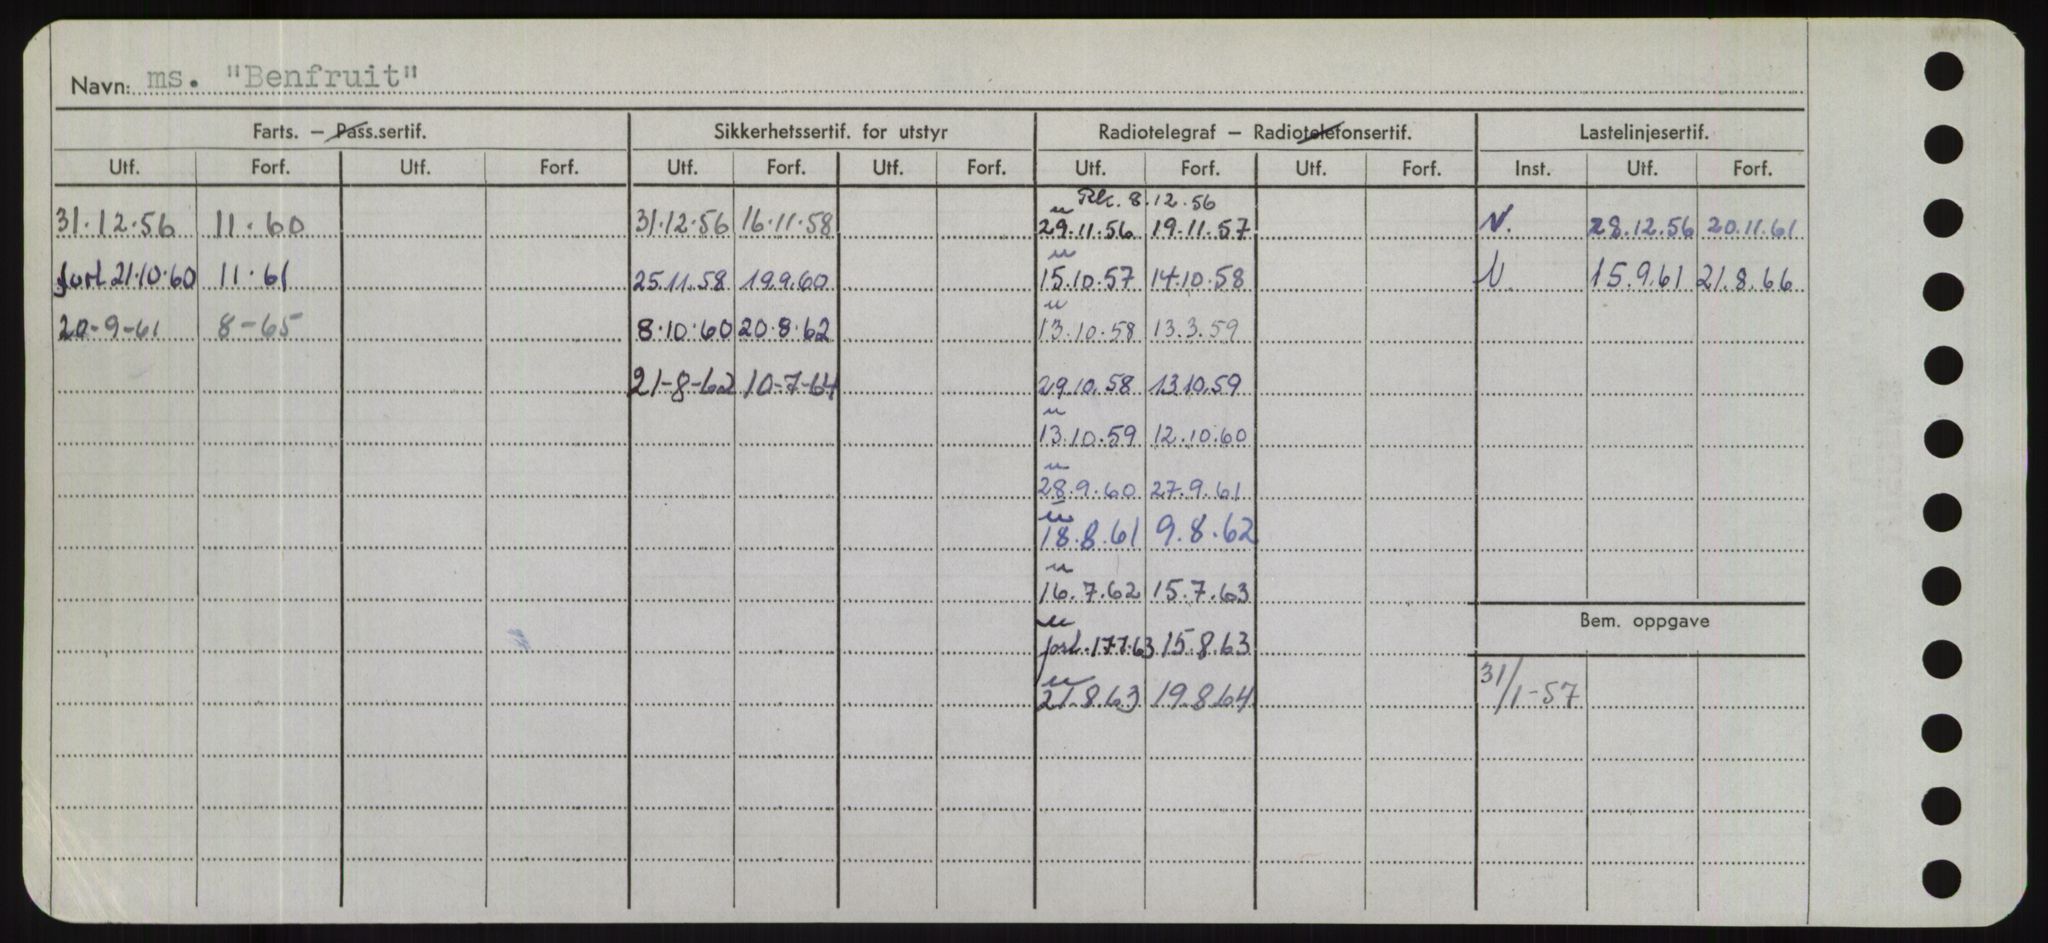 Navn: ms. "Benfruit"
Farts. — Pass.sertif. Sikkerhetssertif. for utstyr Radiotelegraf — Radiotelefonsertif. Lastelinjesertif.
Utf. Forf. Utf. Forf. Utf. Forf. Utf. Forf. Utf. Forf. Utf. Forf. Inst. Utf. Forf.
8.12.56
31.12.56 11.60 31.12.56 16.11.58 29.11.56 19.11.57 N. 28.12.56 20.11.61
forl 21.10.60 11.61 25.11.58 19.9.60 15.10.57 14.10.58 N 15.9.61 21.8.66
20-9-61 8-65 8.10.60 20.8.62 13.10.58 13.3.59
21-8-62 10-7-64 29.10.58 13.10.59
13.10.59 12.10.60
28.9.60 27.9.61
18.8.61 9.8.62
16.7.62 15.7.63
Bem. oppgave
forl. 17.7.63 15.8.63
31/1-57
21.8.63 19.8.64